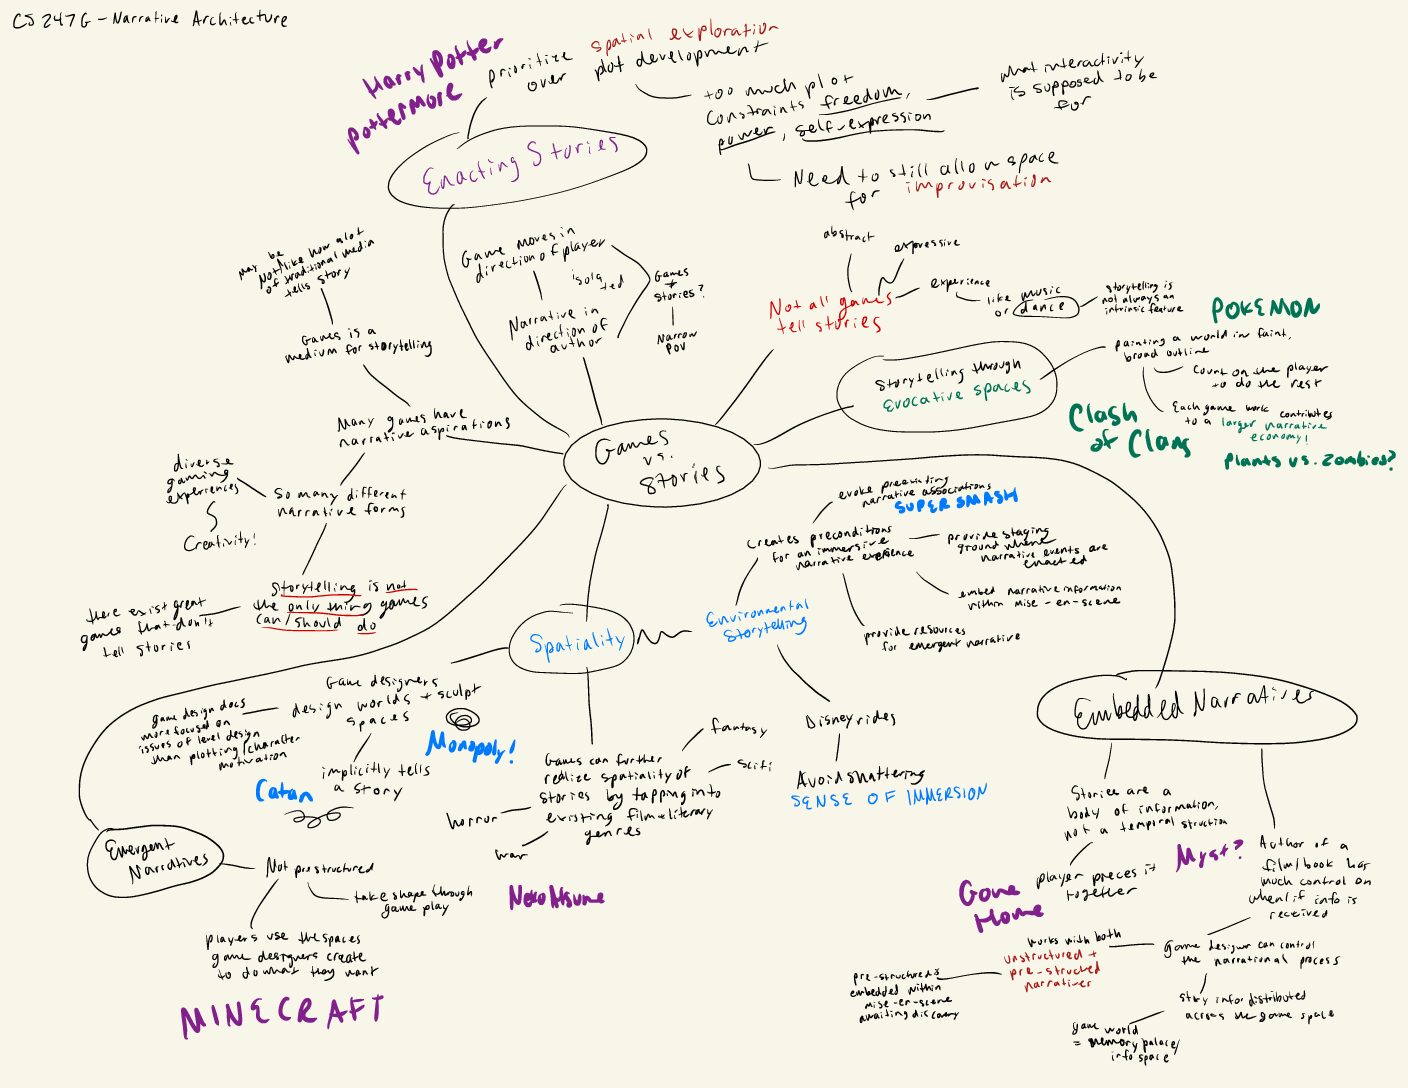 CS 247G - Narrative Architecture
Harry Potter
Pottermore
prioritize spatial exploration
over plot development
too much plot
constraints freedom,
power, self-expression
what interactivity
is supposed to be
for
Need to still allow space
for improvisation
Enacting Stories
may be
Not like how a lot
of traditional media
tells story
Games is a
medium for storytelling
Many games have
narrative aspirations
Game moves in
direction of player
Narrative in
direction of
author
Games
≠
Stories?
Narrow
POV
abstract
expressive
experience
like music
or dance
storytelling is
not always an
intrinsic feature
Not all games
tell stories
POKEMON
painting a world in faint,
broad outline
count on the player
to do the rest
Each game work contributes
to a larger narrative
economy!
Storytelling through
Evocative spaces
Clash
of Clans
Plants vs. Zombies?
Games
vs.
Stories
diverse
gaming
experiences
Creativity!
So many different
narrative forms
Storytelling is not
the only thing games
can/should do
there exist great
games that don't
tell stories
evoke preexisting
narrative associations
SUPER SMASH
Creates preconditions
for an immersive
narrative experience
provide staging
ground where
narrative events are
enacted
embed narrative information
within mise-en-scene
provide resources
for emergent narrative
Environmental
Storytelling
Spatiality
Game designers
design worlds + sculpt
spaces
game design docs
more focused on
issues of level design
than plotting/character
motivation
Monopoly!
implicitly tells
a story
Catan
Games can further
realize spatiality of
stories by tapping into
existing film + literary
genres
fantasy
scifi
horror
war
Neko Atsume
Disney rides
Avoid shattering
SENSE OF IMMERSION
Embedded Narratives
Stories are a
body of information,
not a temporal struction
player pieces it
together
Gone
Home
Myst?
Author of a
film/book has
much control on
when/if info is
received
Game designer can control
the narrational process
works with both
unstructured +
pre-structed
narratives
pre-structured &
embedded within
mise-en-scene
awaiting discovery
story info distributed
across the game space
game world
= memory palace/
info space
Emergent
Narratives
Not prestructured
take shape through
game play
players use the spaces
game designers create
to do what they want
MINECRAFT